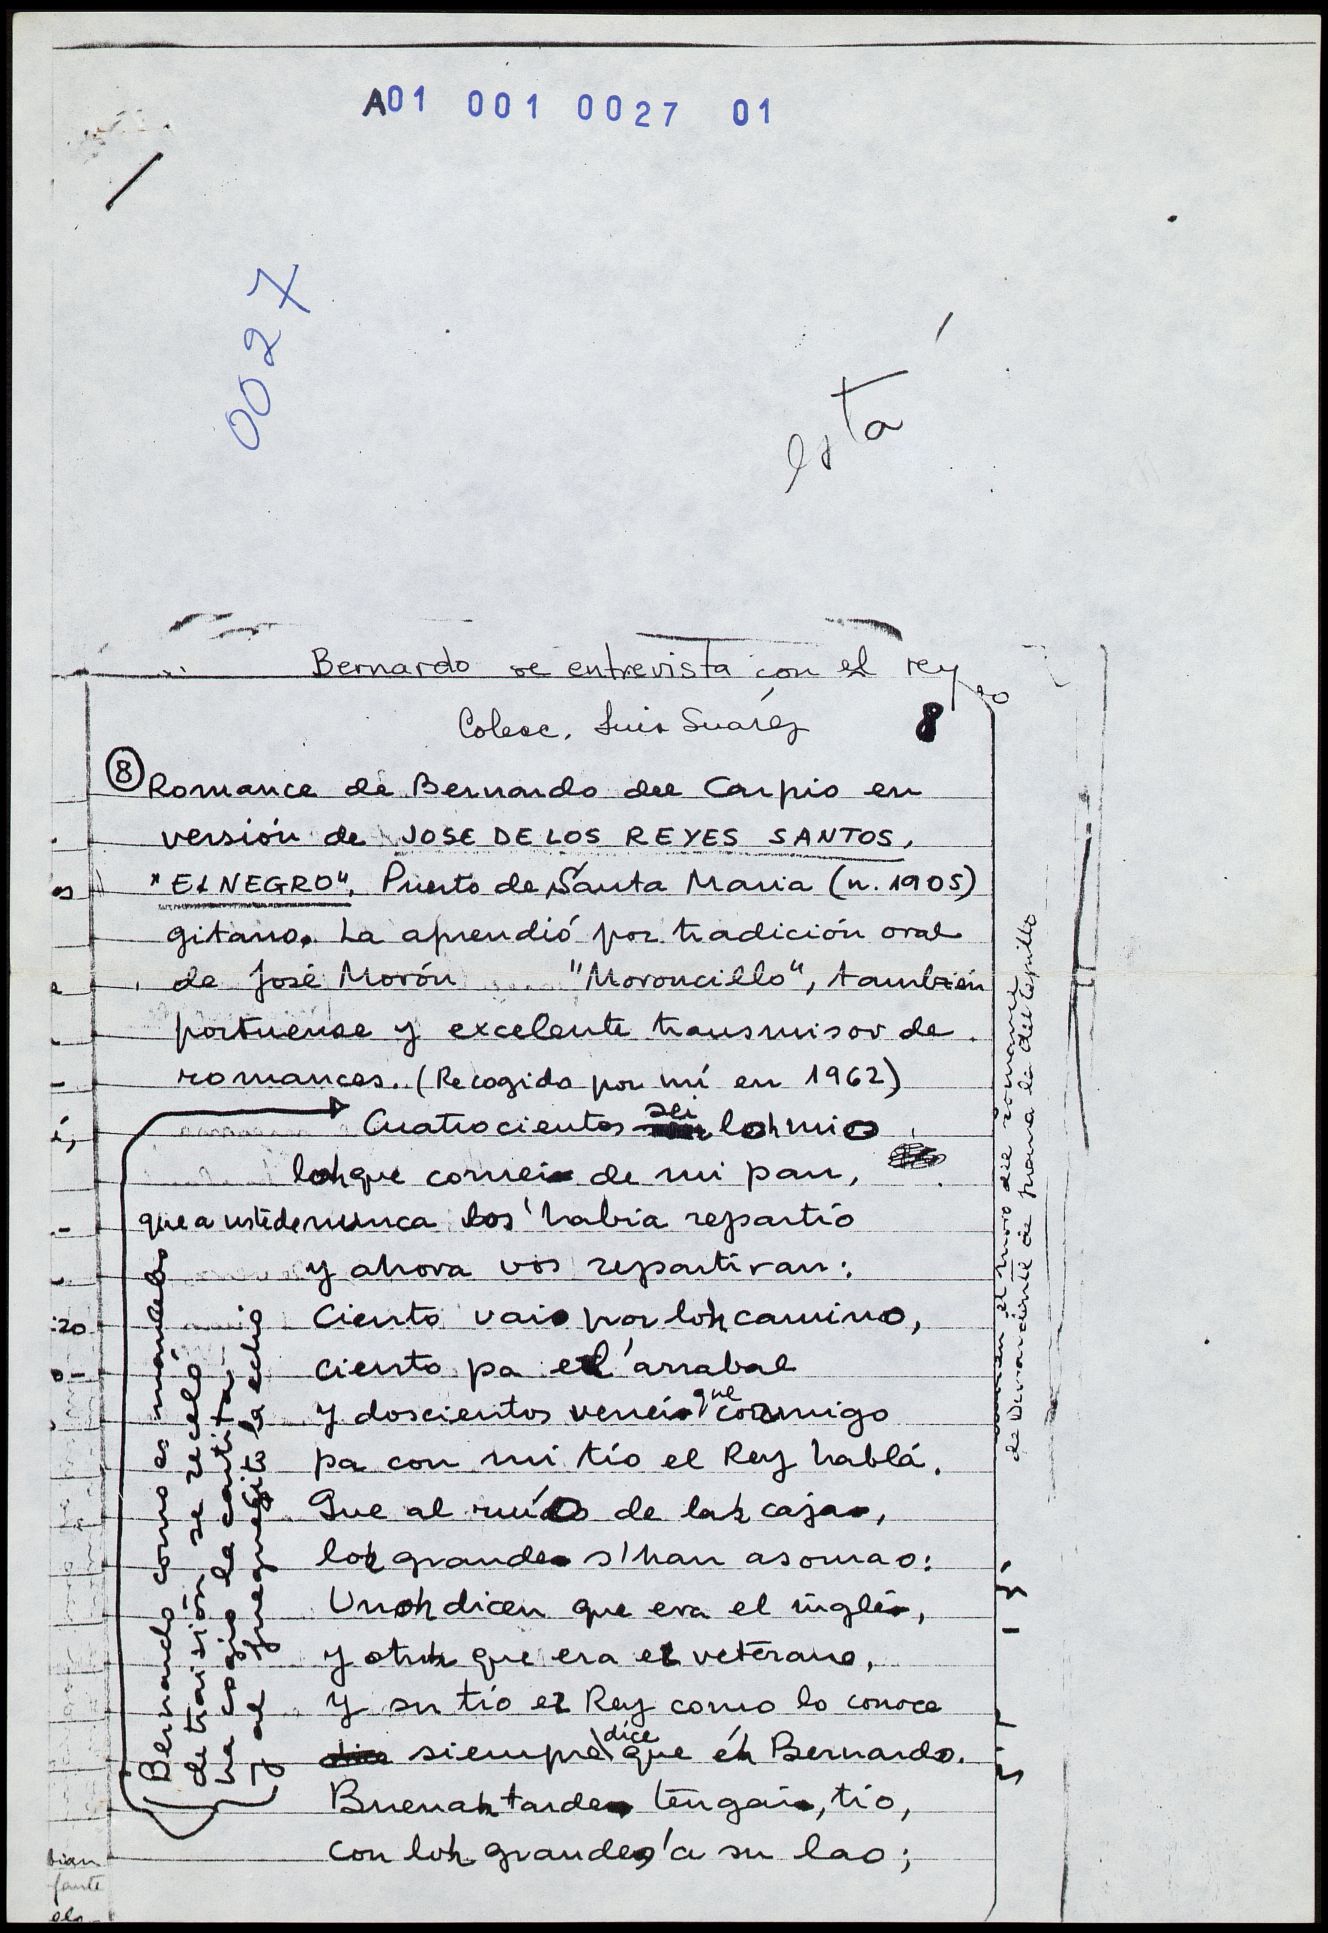 A01 001 0027 01
0027
está
Bernardo se entrevista con el rey
Colecc. Luis Suárez
8
8 Romance de Bernardo del Carpio en
versión de JOSE DE LOS REYES SANTOS,
"EL NEGRO". Puerto de Santa Maria (n. 1905)
gitano. La aprendió por tradición oral
de José Morón "Moroncillo", también
portuense y excelente transmisor de
romances. (Recogida por mí en 1962)
Bernardo como es mancebo
de traisión se receló
ha cogío la cartita
y al fueguesito la echó
Cuatrocientos sei loh mio
loh que comei de mi pan,
que a ustede nunca los había repartío
y ahora vos repartiran:
Ciento vais por loh camino,
ciento pa el arrabal
y doscientos veneis que conmigo
pa con mi tío el Rey hablá.
Que al ruío de lah caja,
loh grande s'han asomao:
Unoh dicen que era el inglé,
y otroh que era el veterano,
Y su tío el Rey como lo conoce
siempre dice que éh Bernardo.
Buenah tarde tengai, tío,
con loh grandes a su lao;
el moro del romance
de Durandarte de mano de del Cepillo
20
bian
fante